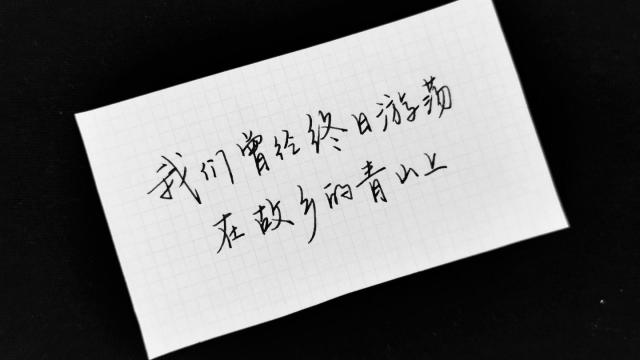 我们曾经终日游荡
在故乡的青山上